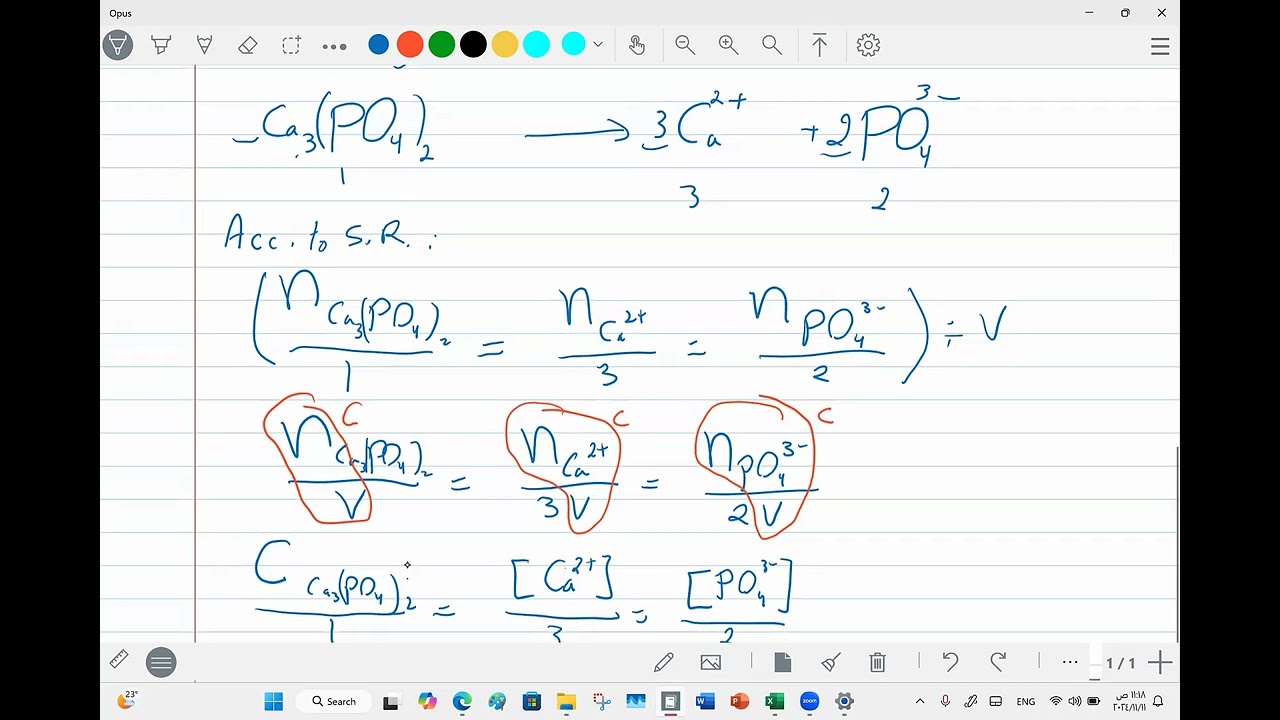 Opus
Ca₃(PO₄)₂ ⟶ 3Ca²⁺ + 2PO₄³⁻
1 3 2
Acc. to S.R. :
(n Ca₃(PO₄)₂ / 1 = n Ca²⁺ / 3 = n PO₄³⁻ / 2) ÷ V
C C C
n Ca₃(PO₄)₂ / V = n Ca²⁺ / 3V = n PO₄³⁻ / 2V
C Ca₃(PO₄)₂ / 1 = [Ca²⁺] / 3 = [PO₄³⁻] / 2
1 / 1
23°
Search
ENG
١١:١٨ ص
٢٠٢٤/١١/١١